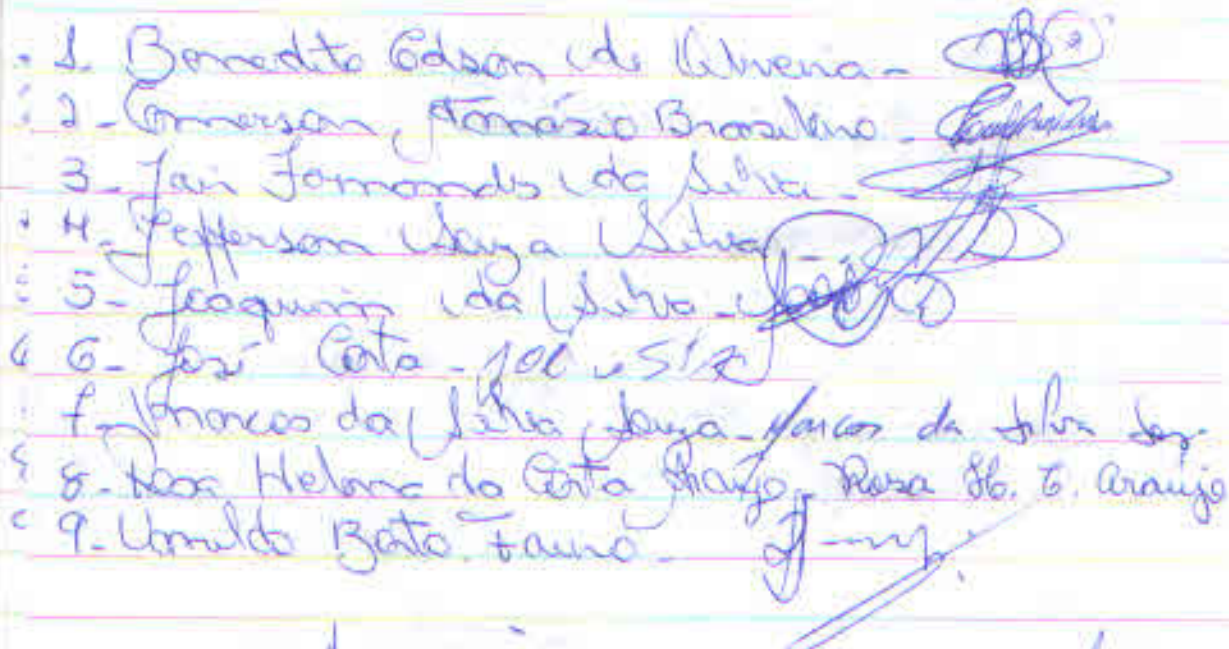 1- Benedito Edson de Oliveira -
2- Emerson, Tomázio Brasileiro -
3- Jair Fernandes da Silva -
4- Jefferson Souza Silva -
5- Joaquim da Silva - José
6- José Costa -
7- Marcos da Silva Souza - Marcos da Silva
8- Rosa Helena da Costa Araújo - Rosa H. C. Araujo
9-